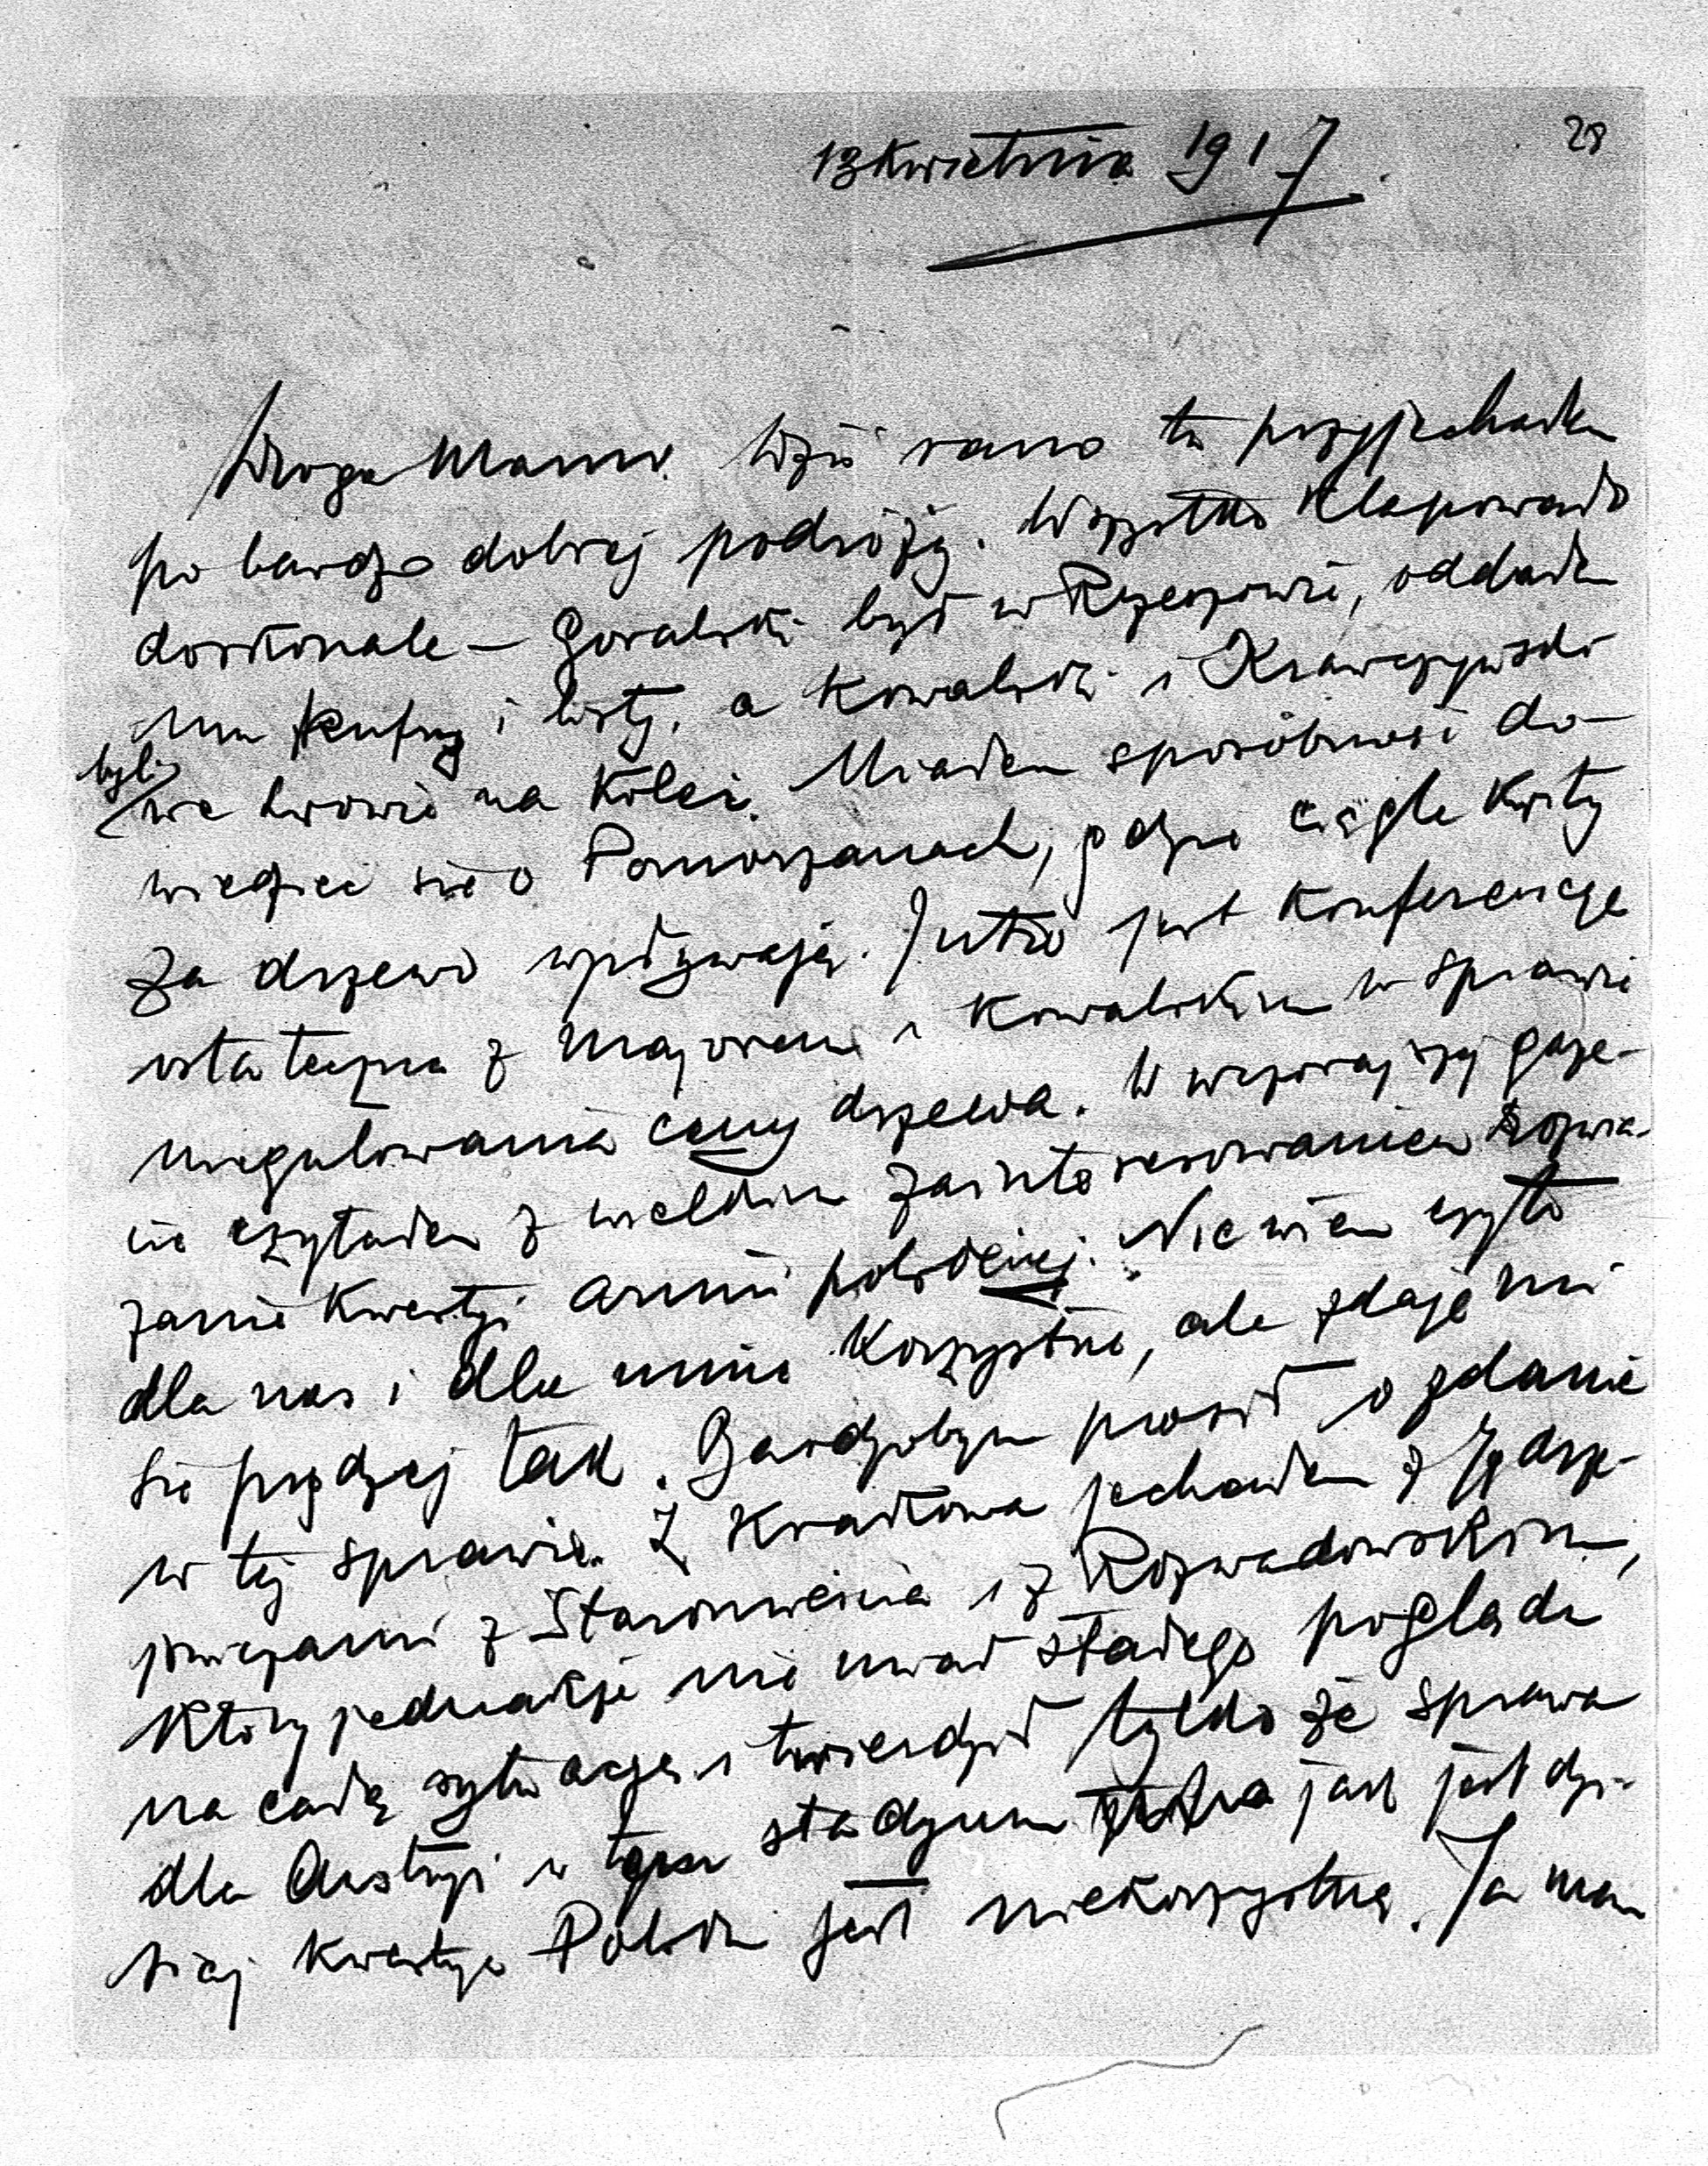 28
13 kwietnia 1917.
Droga Mamo. Dziś rano tu przyjechałem
po bardzo dobrej podróży. Wszystko klapowało
doskonale — Goralski był w Rzeszowie, oddałem
mu kufry i listy, a Kowalski i Krawczyński
byli
we Lwowie na kolei. Miałem sposobność do-
wiedzieć się o Pomorzanach, gdzie ciągle kwity
za drzewo wpływają. Jutro jest konferencya
ostateczna z Majorem i Kowalskim w sprawie
uregulowania ceny drzewa. W wczorajszej gaze-
cie czytałem z wielkim zainteresowaniem rozwią-
zanie kwestyi armii polskiej. Nie wiem czy to
dla nas i dla mnie korzystne, ale zdaje mi
się prędzej tak. Bardzobym prosił o zdanie
w tej sprawie. Z Krakowa jechałem z Jędrze-
jowiczami z Staromieścia i z Rozwadowskim,
który jednakże nie miał stałego poglądu
na całą sytuacyę i twierdził tylko że sprawa
dla Austryi w tym stadyum jak jest dzi-
siaj kwestya Polska jest niekorzystną. Ja mam